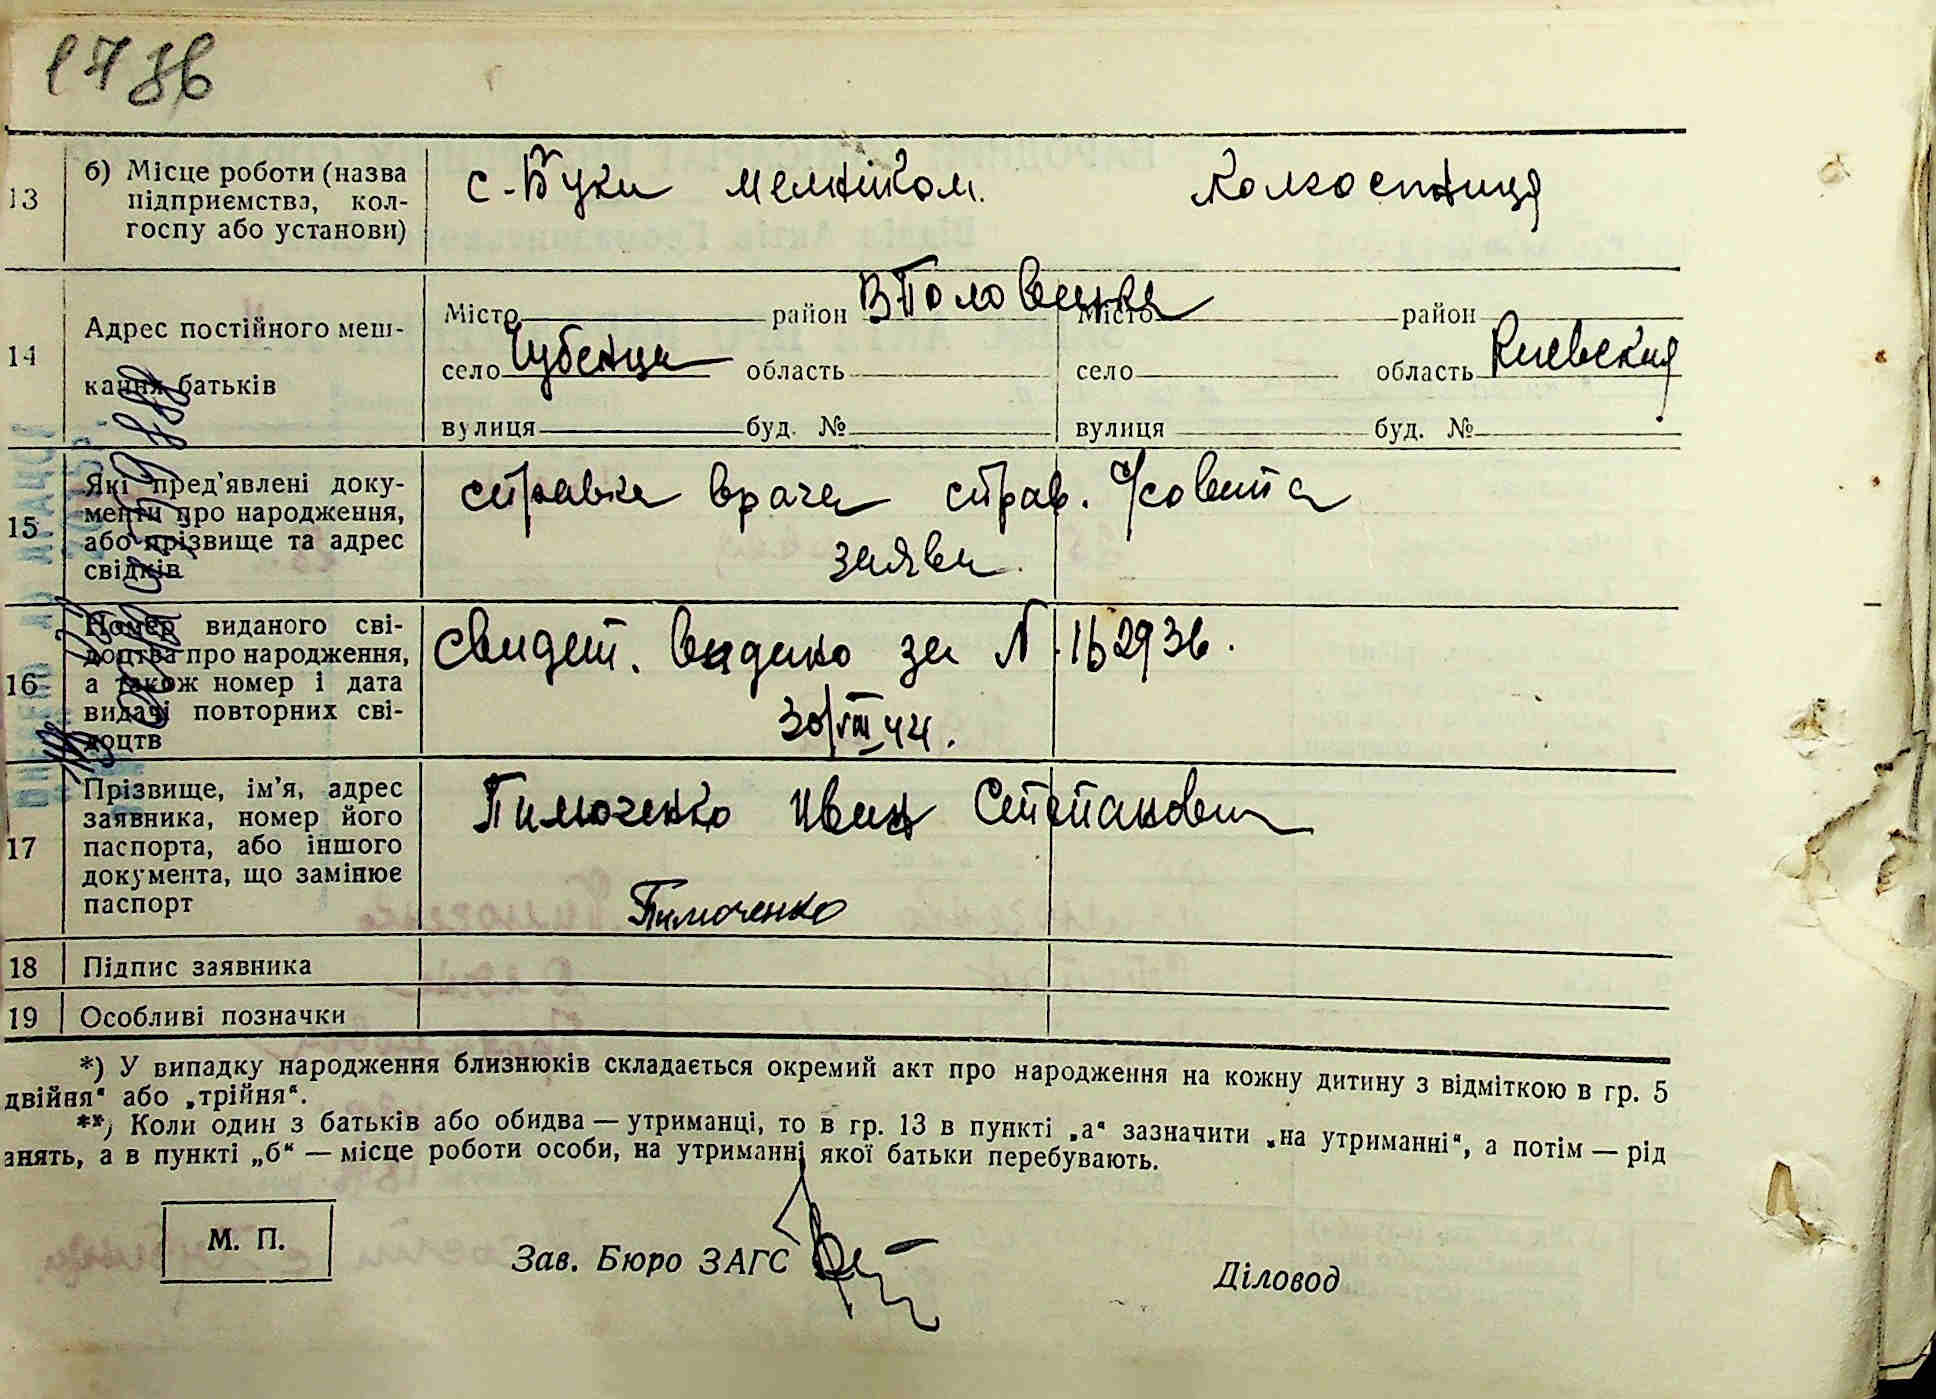 173б
13 б) Місце роботи (назва підприємства, кол-
госпу або установи)
с-Буки колгоспниця
14 Адрес постійного меш-
кання батьків
Місто район В Половецкая Місто район
село Чубенци область село область Киевская
вулиця буд. № вулиця буд. №
15 Які пред'явлені доку-
менти про народження,
або прізвище та адрес
свідків
справка врача справ. с/совета
заява
16 Номер виданого сві-
доцтва про народження,
а також номер і дата
видачі повторних сві-
доцтв
Свидет. видано за № 162936.
30/VIII 44.
17 Прізвище, ім'я, адрес
заявника, номер його
паспорта, або іншого
документа, що замінює
паспорт
Тимченко Иван Степанович
Тимченко
18 Підпис заявника
19 Особливі позначки
*) У випадку народження близнюків складається окремий акт про народження на кожну дитину з відміткою в гр. 5
двійня" або „трійня".
**) Коли один з батьків або обидва — утриманці, то в гр. 13 в пункті „а" зазначити „на утриманні", а потім — рід
анять, а в пункті „б" — місце роботи особи, на утриманні якої батьки перебувають.
М. П.
Зав. Бюро ЗАГС
Діловод